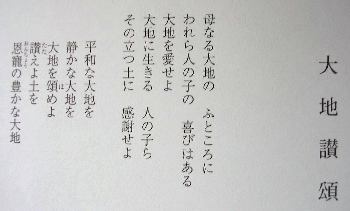 大地讃頌
母なる大地の　ふところに
われら人の子の　喜びはある
大地を愛せよ
大地に生きる　人の子ら
その立つ土に　感謝せよ
平和な大地を
静かな大地を
大地を頌めよ
讃えよ土を
恩寵の豊かな大地